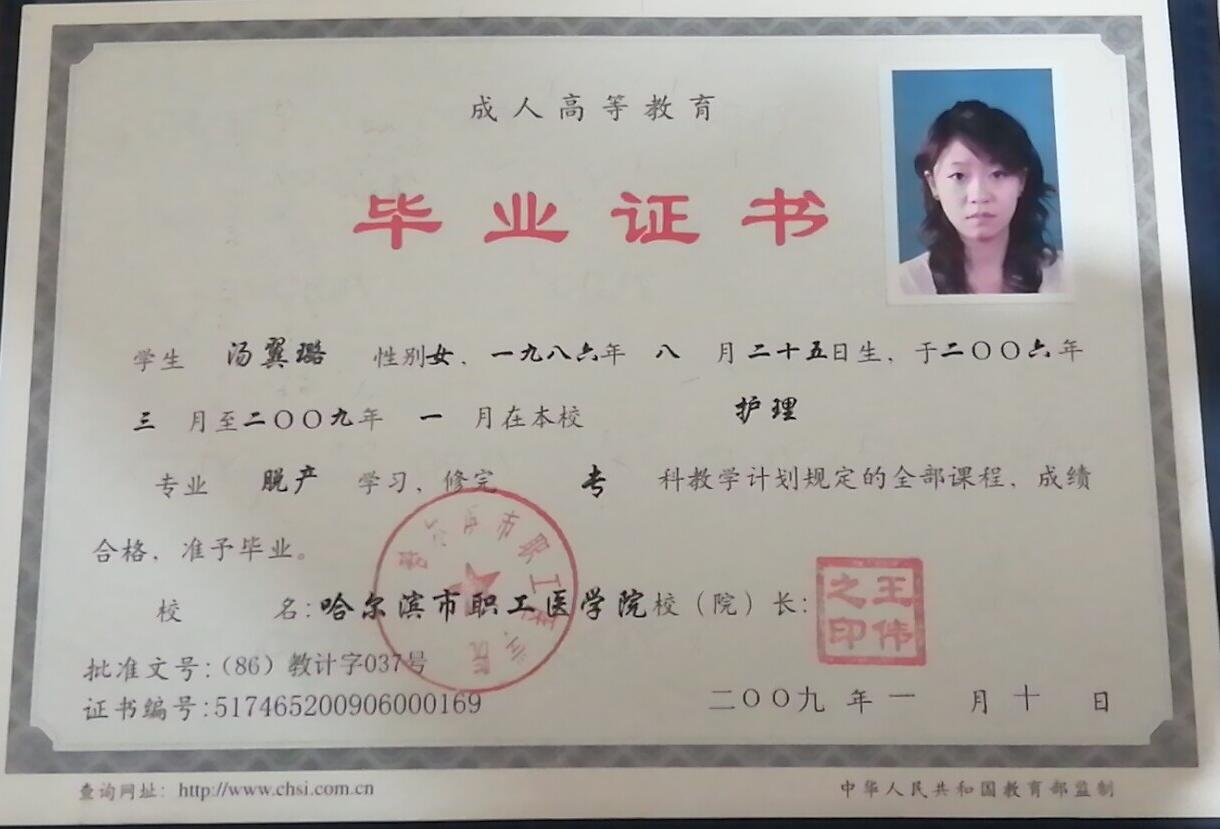 成人高等教育
毕业证书
学生 汤翼璐 性别女、一九八六年 八 月二十五日生，于二〇〇六年
三 月至二〇〇九年 一 月在本校 护理
专业 脱产 学习、修完 专 科教学计划规定的全部课程、成绩
合格，准予毕业。
校 名：哈尔滨市职工医学院校（院）长：
王伟之印
哈尔滨市职工医学院
批准文号：（86）教计字037号
证书编号：517465200906000169
二〇〇九 年 一 月 十 日
查询网址：http://www.chsi.com.cn
中华人民共和国教育部监制